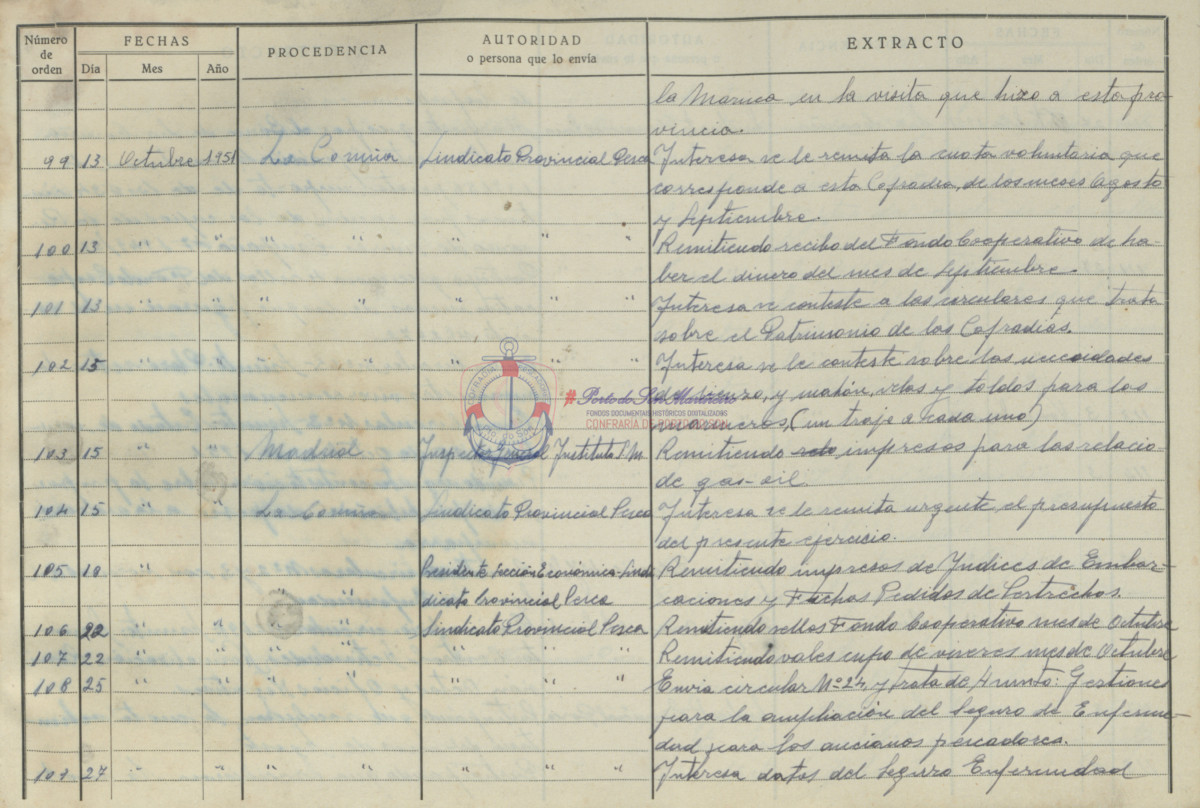 Número de orden FECHAS PROCEDENCIA AUTORIDAD o persona que lo envía EXTRACTO
Día Mes Año
la Marina en la visita que hizo a esta pro-
vincia.
99 13 Octubre 1951 La Coruña Sindicato Provincial Pesca Interesa se le remita la cuota voluntaria que
corresponde a esta Cofradia, de los meses Agosto
y Septiembre.
100 13 " " " " " " " Remitiendo recibo del Fondo Cooperativo de ha-
ber el dinero del mes de Septiembre.
101 13 " " " " " " " Interesa se conteste a las circulares que trata
sobre el Patrimonio de las Cofradías.
102 15 " " " " " " Interesa se le conteste sobre las necesidades
de lienzo, y mahón, velas y toldos para los
marineros, (un traje a cada uno)
103 15 " " Madrid Inspector General Instituto S. M Remitiendo impresos para las relacio
de gas-oil
104 15 " " La Coruña Sindicato Provincial Pesca Interesa se le remita urgente el presupuesto
del presente ejercicio.
105 10 " " " " Presidente Sección Económica-Sindi Remitiendo impresos de Indices de Embar-
dicato Provincial Pesca caciones y Fichas Pedidos de Pertrechos.
106 22 " " " " Sindicato Provincial Pesca Remitiendo sellos Fondo Cooperativo mes de Octubre
107 22 " " " " " " " Remitiendo vales cupo de viveres mes de Octubre
108 25 " " " " " " " Envia circular Nº 24, y trata de Asunto: Gestiones
para la ampliación del Seguro de Enferme-
dad para los ancianos pescadores.
109 27 " " " " " " " Interesa datos del Seguro Enfermedad
#Porto do Son Mariñeiro
FONDOS DOCUMENTAIS HISTÓRICOS DIXITALIZADOS
CONFRARÍA DE PORTO DO SON